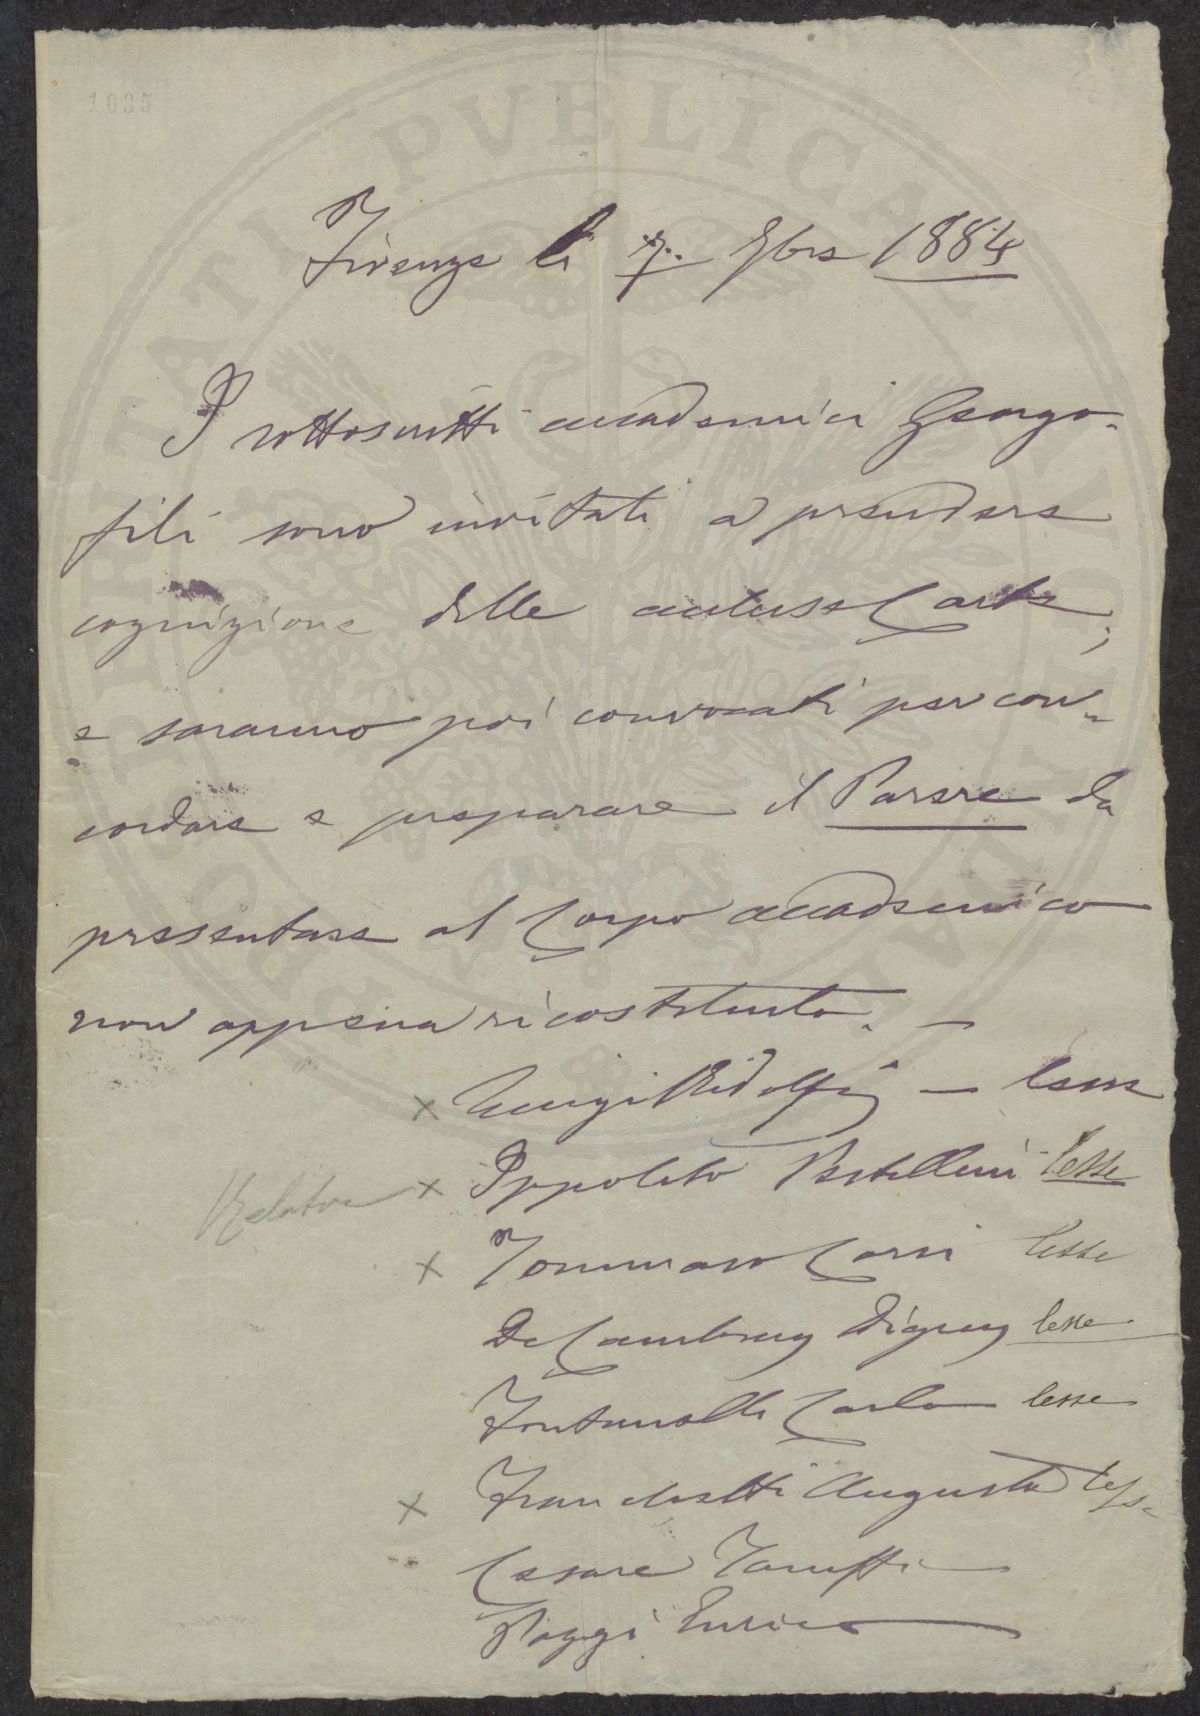 1035
Firenze li 7. 9bre 1884
I sottoscritti accademici Georgo-
fili sono invitati a prendere
cognizione delle accluse Carte;
e saranno poi convocati per con-
cordare e preparare il Parere da
presentare al Corpo accademico
non appena ricostituito. —
x Luigi Ridolfi — lesse
Relatore x Ippolito Pestellini lesse
x Tommaso Corsi lesse
De Cambray Digny lesse
Fontanelli Carlo lesse
x Franchetti Augusto lesse
Cesare Taruffi
Poggi Enrico